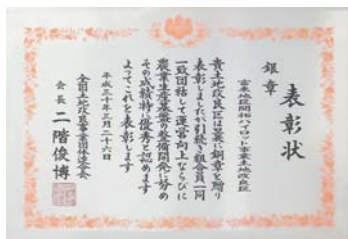 表彰状
銀章
宮来地区開拓パイロット事業土地改良区
貴土地改良区は曩に銅章を贈り
表彰しましたが引続き組合員一同
一致団結して運営向上ならびに
農業生産基盤の整備開発に努め
その成績特に優秀と認めます
よってこれを表彰します
平成三十年三月二十六日
全国土地改良事業団体連合会
会長 二階俊博